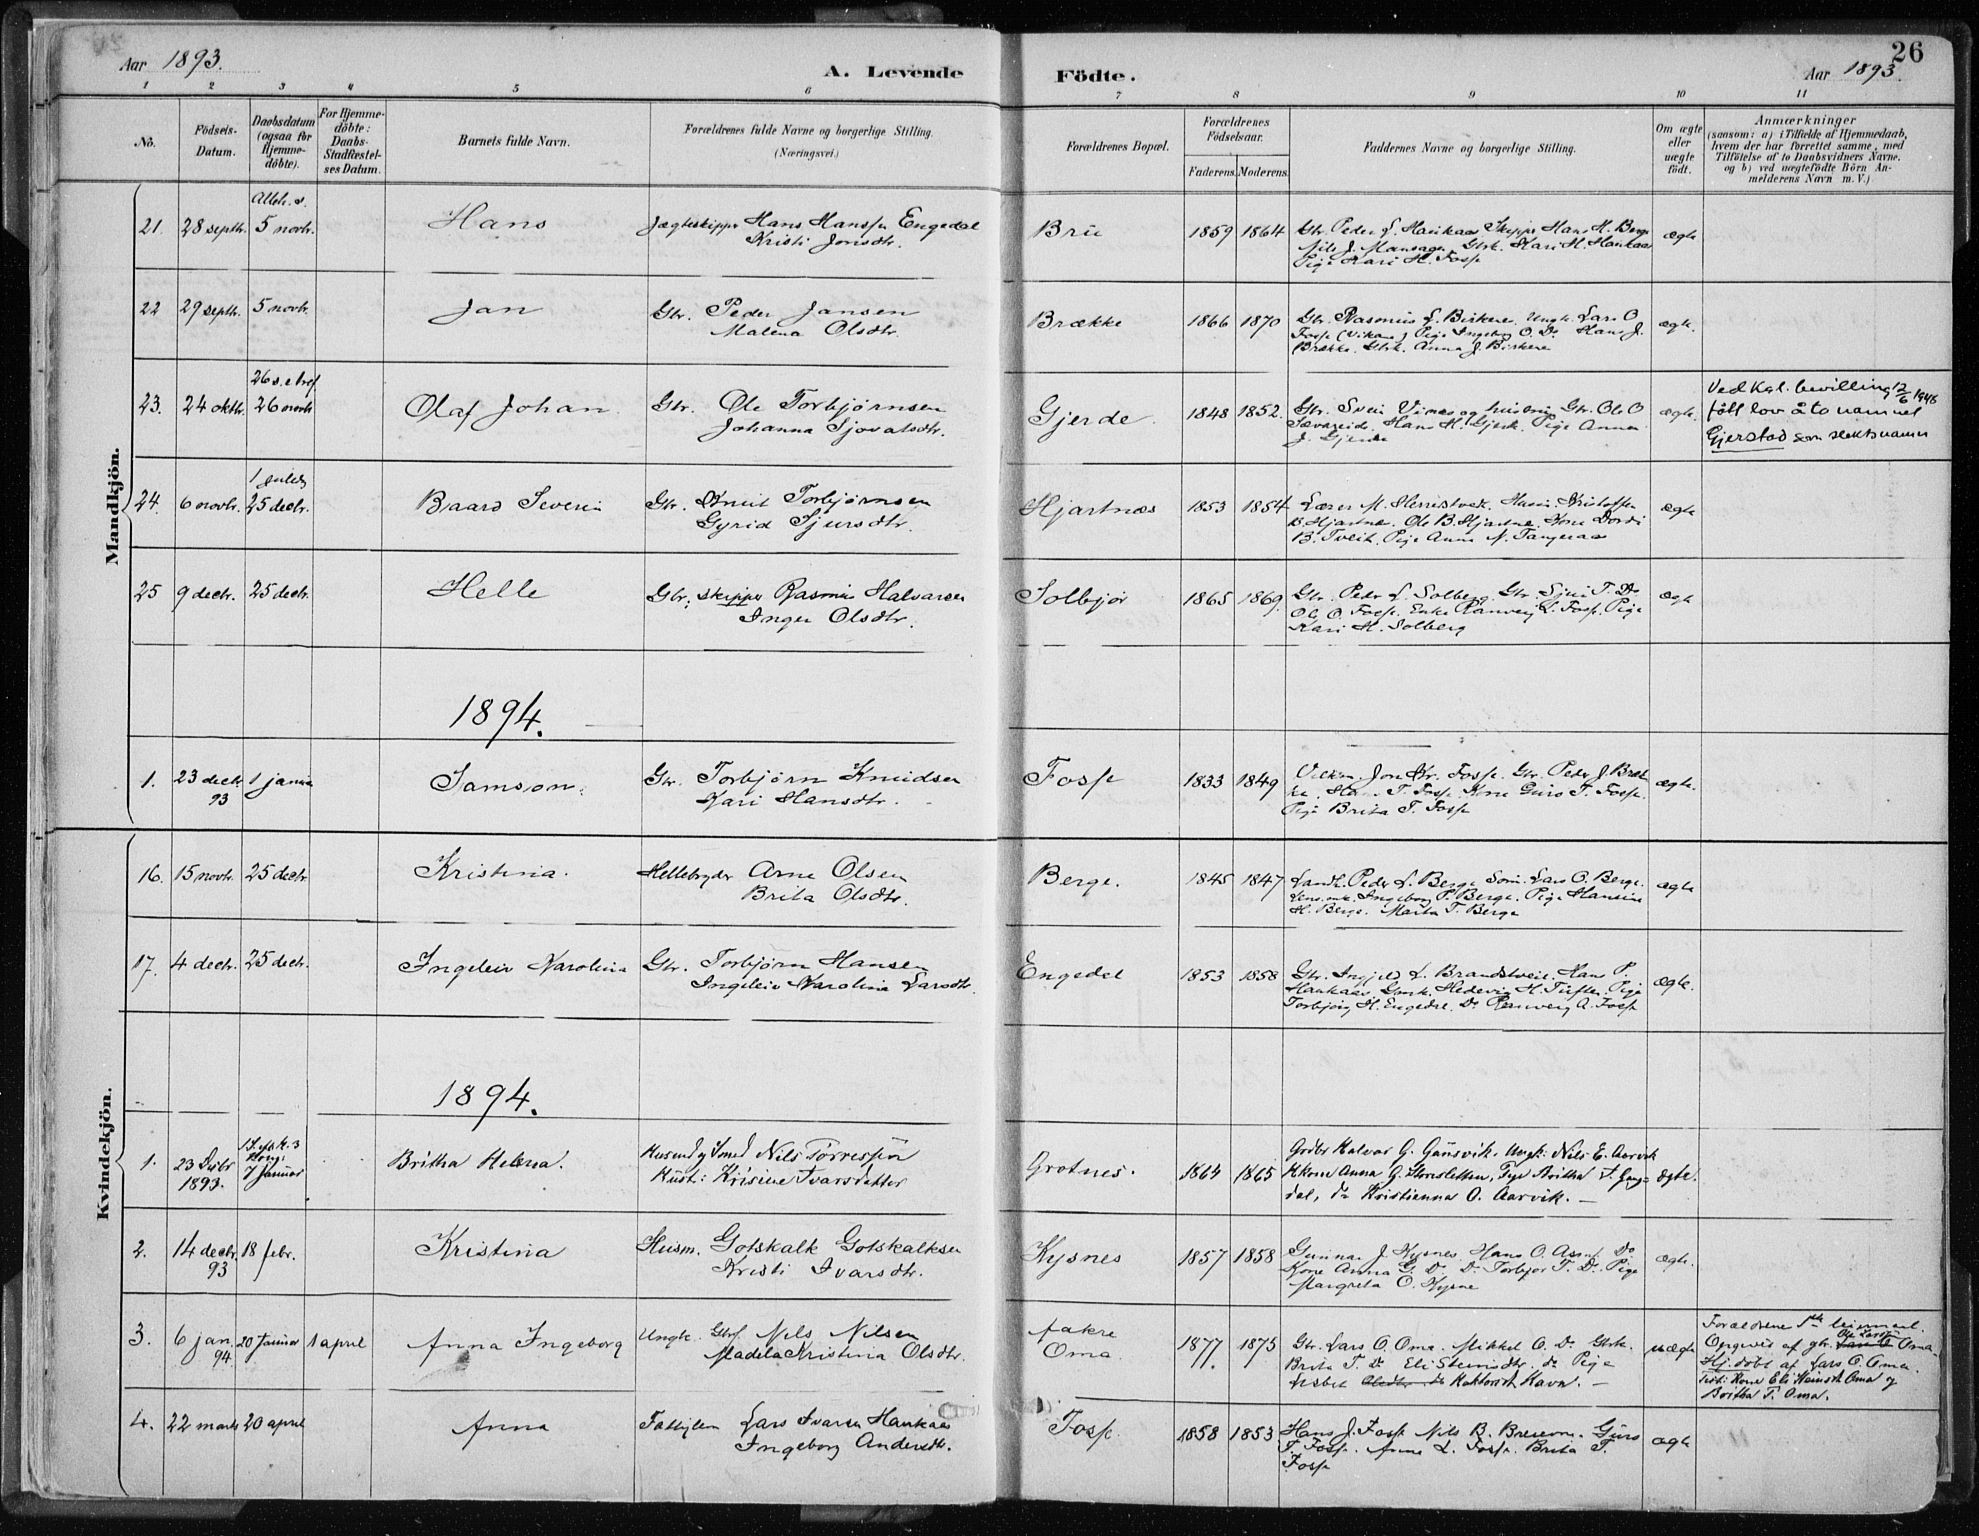 26
Aar 1893.
A. Levende Födte.
Aar 1893.
1 2 3 4 5 6 7 8 9 10 11
No.
Födsels-
Datum.
Daabsdatum
(ogsaa for
Hjemme-
döbte).
For Hjemme-
döbte:
Daabs-
Stadfæstel-
ses Datum.
Barnets fulde Navn.
Forældrenes fulde Navne og borgerlige Stilling.
(Næringsvei.)
Forældrenes Bopæl.
Forældrenes
Födselsaar.
Faderens. Moderens.
Faddernes Navne og borgerlige Stilling.
Om ægte
eller
uægte
födt.
Anmærkninger
(saasom: a) i Tilfælde af Hjemmedaab,
hvem der har forrettet samme, med
Tilföielse af to Daabsvidners Navne.
og b) ved uægtefödte Börn An-
melderens Navn m. V.)
Mandkjön.
21. 28 septr. 5 novbr. Hans Jægteskipper Hans Hansen Engedal
Kristi Jonsdtr.
Brü 1859 1864 Gbr. Peder L. Haukaas Skipper Hans H. Berge
Nils J. Mansager Gbrk. Kari H. Haukaas
Pige Kari H. Fosse
ægte
22 29 septr. 5 novbr. Jan Gbr. Peder Jansen
Malena Olsdtr.
Brække 1866 1870 Gbr. Rasmus L. Birkene Ungk. Lars O
Fosse (Vikane) Pige Ingeborg O. Do Hans J.
Brække. Gbrk. Anna J. Birkene
ægte.
23. 24 oktbr. 26 novbr Olaf Johan Gbr. Ole Torbjørnsen
Johanna Sjovatsdtr.
Gjerde 1848 1852. Gbr. Svein Vines og hustru Gbr. Ole O
Sævareid. Hans H. Gjerde. Pige Anna
J. Gjerde
ægte.
Ved Kgl. bevilling 12/6 1946
fått lov å ta navnet
Gjerstad som slektsnavn
24. 6 novbr. 25 decbr. Baard Severin Gbr. Knut Torbjørnsen
Gyrid Sjursdtr.
Hjartnæs 1853 1854 Lærer M. Herreistveit. Husm. Kristoffer
B. Hjartnæs. Ole B. Hjartnæ. Kone Dordi
B. Tveit. Pige Anna N. Tangeraas
ægte
25 9 decbr. 25 decbr. Helle Gbr. skipper Rasmus Halvarsen
Inger Olsdtr.
Solbjør 1865 1869. Gbr. Peder L. Solberg. Gbr. Sjur T. Do
Ole O. Fosse. Enke Ranveig L. Fosse. Pige
Kari H. Solberg
ægte
1894.
1. 23 decbr 93 1 januar Samson. Gbr. Torbjørn Knudsen
Kari Hansdtr.
Fosse 1833 1849 Jon Kr. Fosse. Gbr. Peder J. Bræk
ke. Hans T. Fosse. Kone Guro T. Fosse.
Pige Brita T. Fosse
ægte.
Kvindekjön.
16. 15 novbr. 25 decbr Kristina. Hellebryder Arne Olsen
Brita Olsdtr.
Berge. 1845 1847 Landh. Peder L. Berge Lars O. Berge.
Ingeborg P. Berge. Pige Hansine
H. Berge. Marta T. Berge
ægte
17. 4 decbr. 25 decbr. Ingeleiv Karolina Gbr. Torbjørn Hansen
Ingeleiv Karolina Larsdtr.
Engedal 1853 1858 Gbr. Ingjeld L. Brandstveit. Hans P.
Haukaas Gbrk. Hedevig H. Tufte. Pige
Torbjørg H. Engedal. Do Ranveig A. Fosse
ægte.
1894.
1. 23 Decbr 1893. 7 Januar Britha Helena. Husmd og Smed Nils Tørressøn
Hust: Kristine Ivarsdatter
Grotnes. 1864 1865 Grdbr Halvar G. Gaasvik. Ungk. Nils E. Aarvik
Kkone Anna G. Storesletten, Pige Britha T. Gaus-
dal, do Kristianna O. Aarvik.
Ægte.
2. 14 decbr. 93 18 febr. Kristina Husm. Gotskalk Gotskalksen
Kristi Ivarsdtr.
Kysnes 1857 1858 Gunnar J. Kysnes Hans O. Do
Kone Anna G. Do Do Torbjor T. Do. Pige
Margreta O. Kysne
ægte.
3. 6 jan. 94. 20 Januar 1 april Anna Ingeborg Ungk. Gbrs. Nils Nilsen
Madela Kristina Olsdtr.
Jakre
Oma
1877. 1875 Gbr. Lars O. Oma. Mikkel O. Do Gbrk.
Brita T. Do Eli Steinsdtr. do Pige
Lisbet Havn.
uægte
Forældrene 1ste leiermaal.
Opgivet af gbr. Ole Larss. Oma.
Hj. döbt af Lars O. Oma.
Test: Kone Eli Steinsdt Oma og
Britha T. Oma.
4. 22 marts 20 april Anna Fattiglem Lars Ivarsen Haukaas
Ingeborg Andersdtr.
Fosse. 1858 1853 Hans J. Fosse Nils B. Guro
T. Fosse. Anna L. Fosse. Brita T.
Fosse
ægte